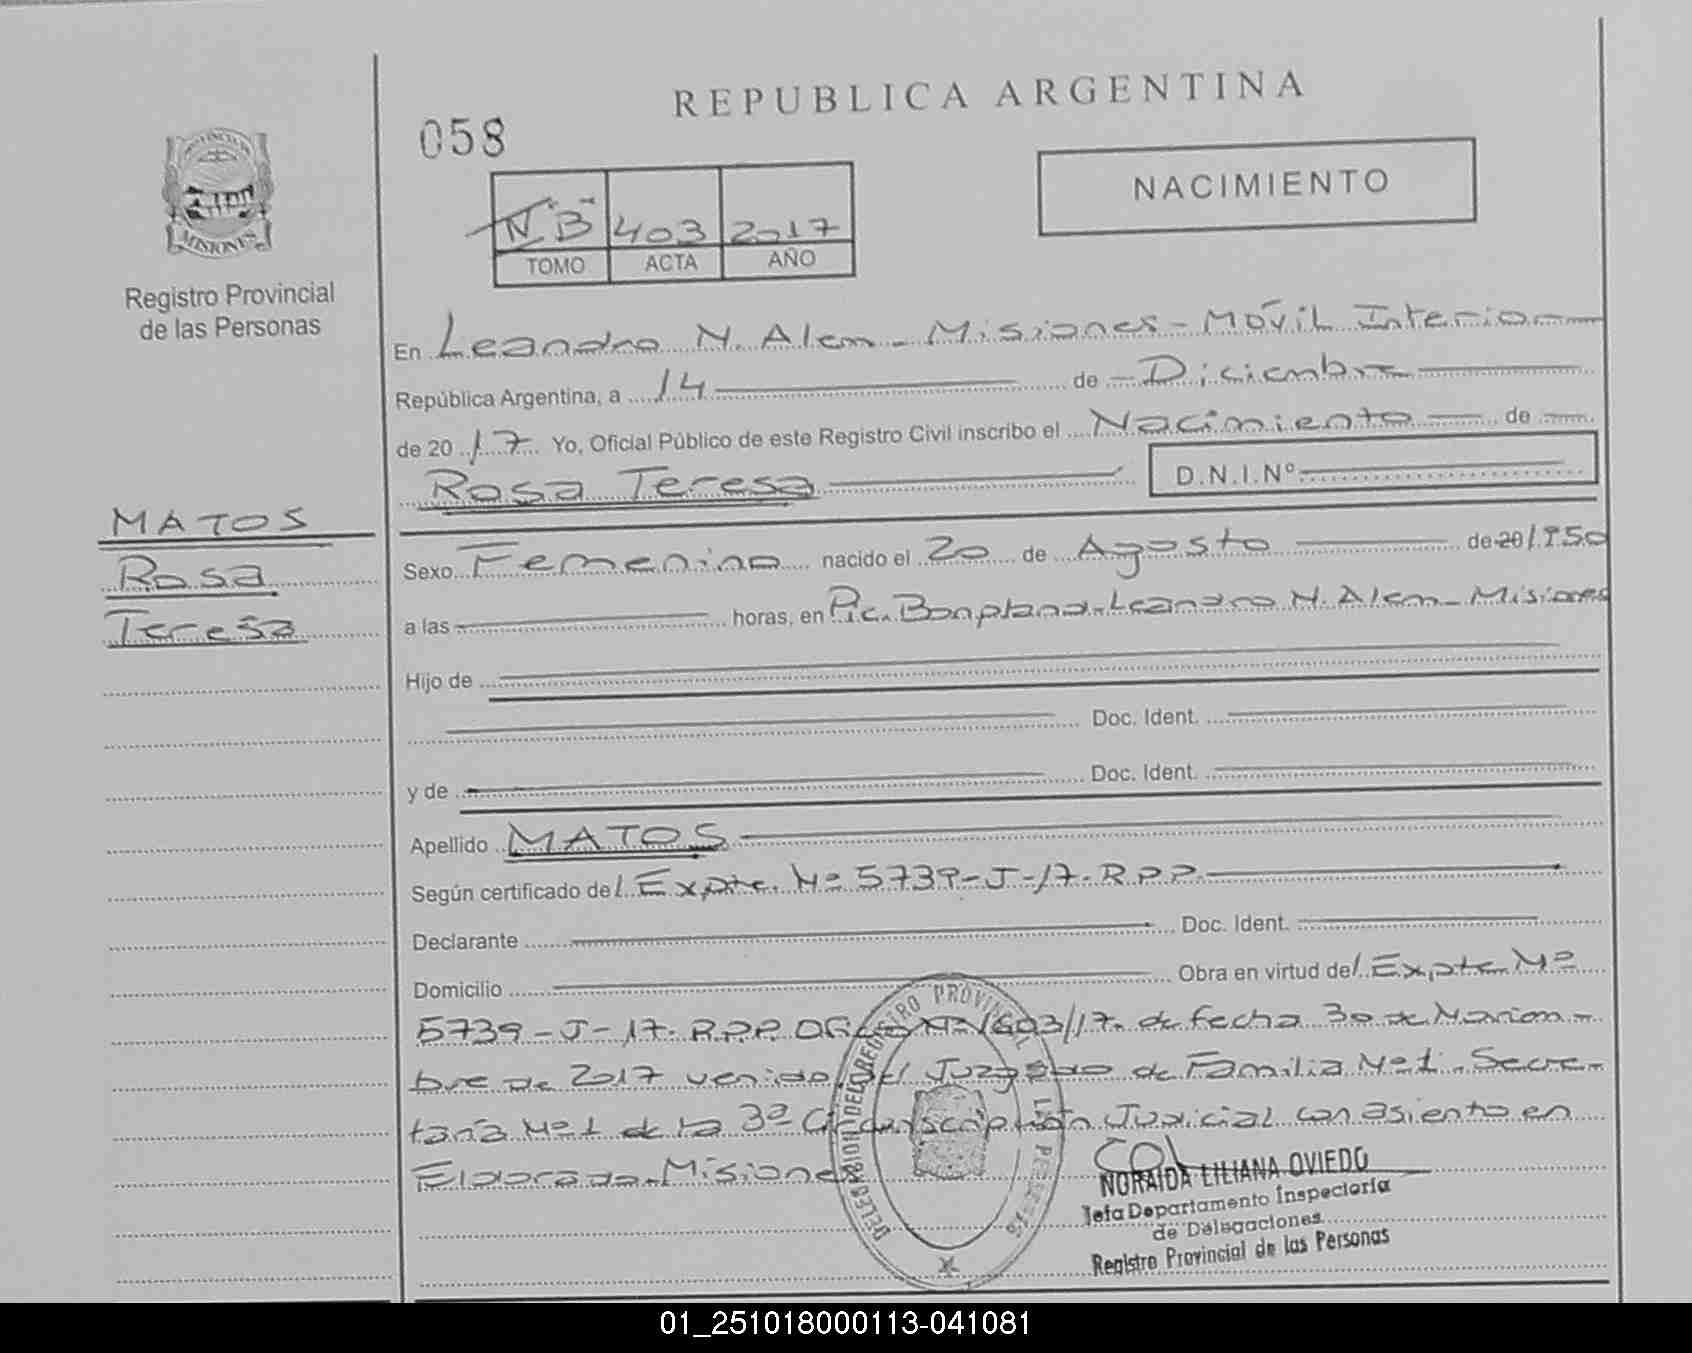 REPUBLICA ARGENTINA
058
NACIMIENTO
N "B" 403 2017
TOMO ACTA AÑO
PROVINCIA DE
MISIONES
Registro Provincial
de las Personas
En Leandro N. Alem - Misiones - Móvil Interior
República Argentina, a 14 de Diciembre
de 2017 Yo, Oficial Público de este Registro Civil inscribo el Nacimiento de
Rosa Teresa D.N.I.Nº
MATOS
Rosa
Teresa
Sexo Femenino nacido el 20 de Agosto de 20 1950
a las horas, en Pic. Bonpland - Leandro N. Alem - Misiones
Hijo de
Doc. Ident.
y de Doc. Ident.
Apellido MATOS
Según certificado del Expte. Nº 5739-J-17-R.P.P.
Declarante Doc. Ident.
Domicilio Obra en virtud del Expte Nº
5739-J-17-R.P.P. Oficio Nº 1603/17. de fecha 30 de Noviem-
bre de 2017 venido del Juzgado de Familia Nº1. Secre-
taría Nº1 de la 3ª Circunscripción Judicial con asiento en
Eldorado-Misiones
DELEGACION DEL REGISTRO PROVINCIAL DE LAS PERSONAS
NORAIDA LILIANA OVIEDO
Jefa Departamento Inspectoría
de Delegaciones
Registro Provincial de las Personas
01_251018000113-041081